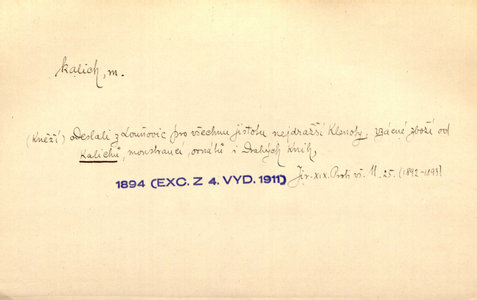 kalich, m.
(Kněží) Odeslali z Louňovic pro všechnu jistotu nejdražší klenoty, vzácné zboží od
kalichů, monstrancí, ornátů i drahých knih,
1894 (EXC. Z 4. VYD. 1911)
Jir. XIX. Proti vš. M. 25. (1892-1893)